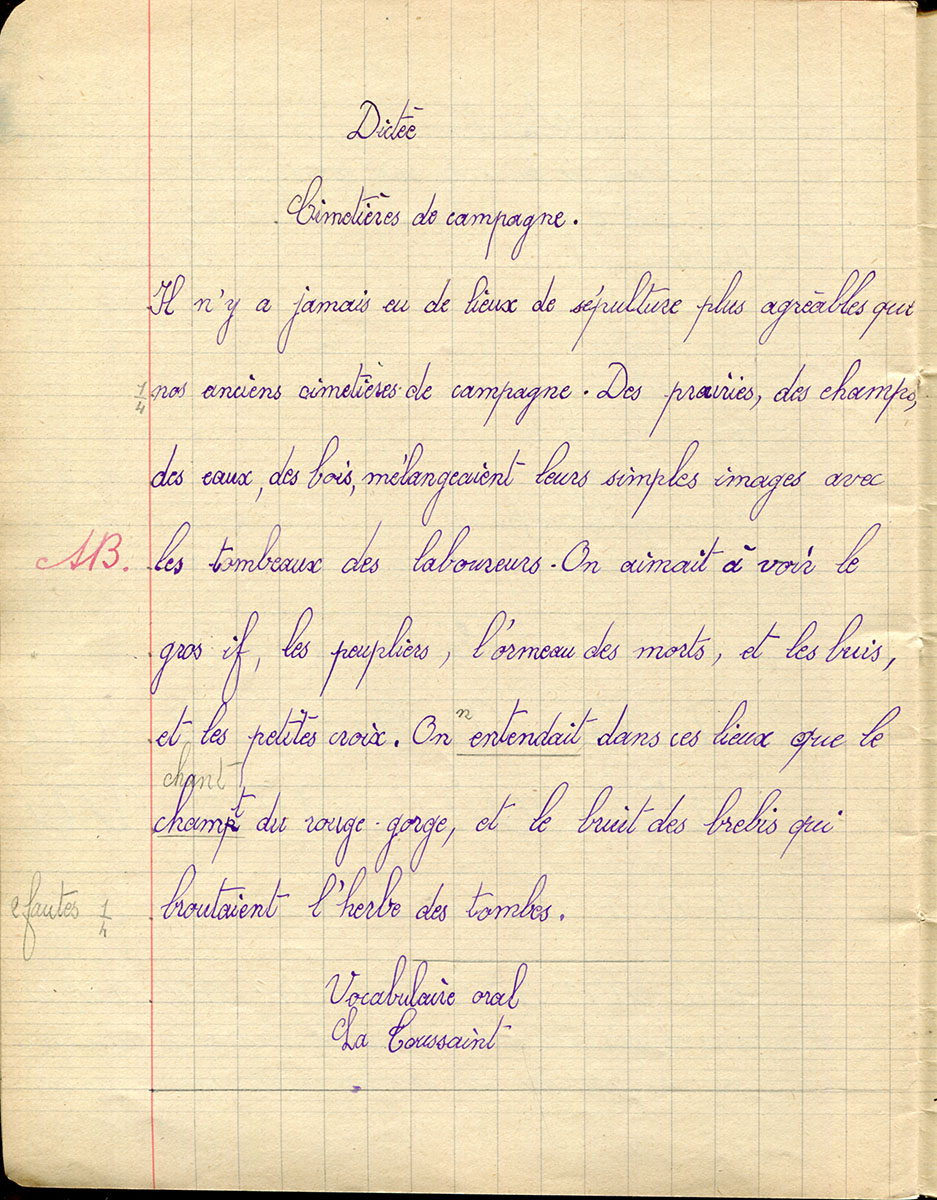 Dictée
Cimetières de campagne.
Il n'y a jamais eu de lieux de sépulture plus agréables que
1/4 nos anciens cimetières de campagne. Des prairies, des champs,
des eaux, des bois, mélangeaient leurs simples images avec
AB. les tombeaux des laboureurs. On aimait à voir le
gros if, les peupliers, l'ormeau des morts, et les buis,
n
et les petites croix. On entendait dans ces lieux que le
chant
champt du rouge-gorge, et le bruit des brebis qui
2 fautes 1/4 broutaient l'herbe des tombes.
Vocabulaire oral
La Toussaint